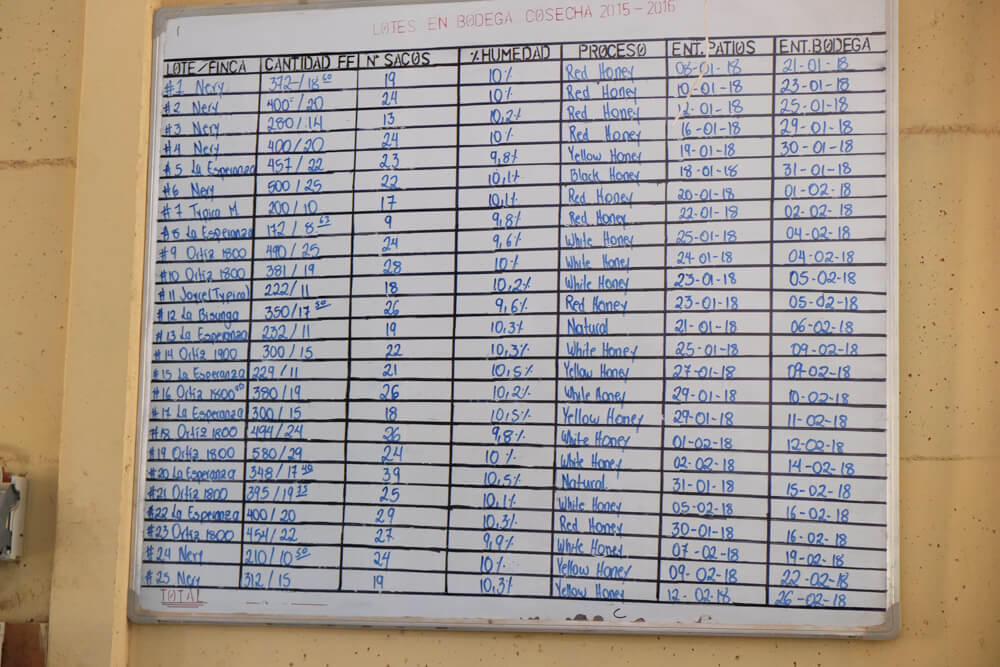 LOTES EN BODEGA COSECHA 2015-2016
LOTE/FINCA CANTIDAD FF Nº SACOS %HUMEDAD PROCESO ENT.PATIOS ENT.BODEGA
#1 Nery 372/18 60 19 10% Red Honey 08-01-18 21-01-18
#2 Nery 400/20 24 10% Red Honey 10-01-18 23-01-18
#3 Nery 280/14 13 10,2% Red Honey 12-01-18 25-01-18
#4 Nery 400/20 24 10% Red Honey 16-01-18 29-01-18
#5 La Esperanza 457/22 23 9,8% Yellow Honey 19-01-18 30-01-18
#6 Nery 500/25 22 10,1% Black Honey 18-01-18 31-01-18
#7 Typica M. 200/10 17 10,1% Red Honey 20-01-18 01-02-18
#8 La Esperanza 172/8 63 9 9,8% Red Honey 22-01-18 02-02-18
#9 Ortiz 1800 490/25 24 9,6% White Honey 25-01-18 04-02-18
#10 Ortiz 1800 381/19 28 10% White Honey 24-01-18 04-02-18
#11 Joycel(Typica) 222/11 18 10,2% White Honey 23-01-18 05-02-18
#12 La Bisunga 350/17 50 26 9,6% Red Honey 23-01-18 05-02-18
#13 La Esperanza 232/11 19 10,3% Natural 21-01-18 06-02-18
#14 Ortiz 1900 300/15 22 10,3% White Honey 25-01-18 09-02-18
#15 La Esperanza 229/11 21 10,5% Yellow Honey 27-01-18 09-02-18
#16 Ortiz 1800 380/19 26 10,2% White Honey 29-01-18 10-02-18
#17 La Esperanza 300/15 18 10,5% Yellow Honey 29-01-18 11-02-18
#18 Ortiz 1800 494/24 26 9,8% White Honey 01-02-18 12-02-18
#19 Ortiz 1800 580/29 24 10% White Honey 02-02-18 14-02-18
#20 La Esperanza 348/17 40 39 10,5% Natural 31-01-18 15-02-18
#21 Ortiz 1800 395/19 75 25 10,1% White Honey 05-02-18 16-02-18
#22 La Esperanza 400/20 29 10,3% Red Honey 30-01-18 16-02-18
#23 Ortiz 1800 454/22 27 9,9% White Honey 07-02-18 19-02-18
#24 Nery 210/10 50 24 10% Yellow Honey 09-02-18 22-02-18
#25 Nery 312/15 19 10,3% Yellow Honey 12-02-18 26-02-18
TOTAL